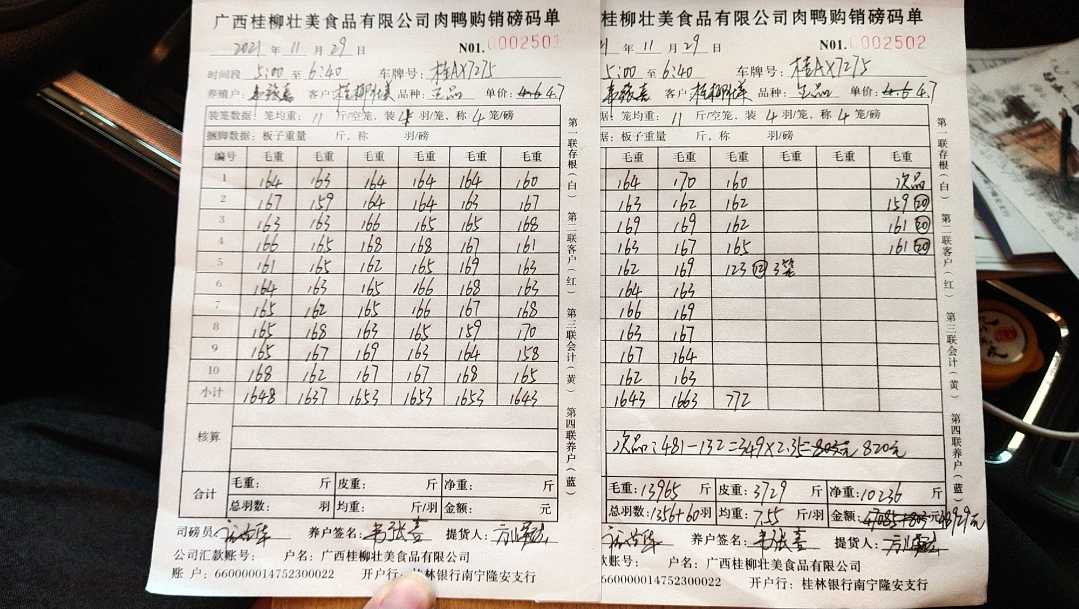 广西桂柳壮美食品有限公司肉鸭购销磅码单
2021 年 11 月 29 日 N01. 0002501
时间段 5:00 至 6:40 车牌号: 桂AX7275
养殖户: 客户: 桂柳壮美 品种: 单价: 4.6 4.7
装笼数据: 笼均重: 11 斤/空笼, 装 4 羽/笼, 称 4 笼/磅
捆脚数据: 板子重量 斤, 称 羽/磅
编号 毛重 毛重 毛重 毛重 毛重 毛重
1 164 163 164 164 164 160
2 167 159 164 164 163 167
3 163 163 166 165 165 168
4 166 165 168 168 167 161
5 161 165 162 165 169 163
6 164 163 165 166 168 163
7 165 162 165 166 167 168
8 165 168 163 165 159 170
9 165 167 169 163 164 158
10 168 162 167 167 168 165
小计 1648 1637 1653 1653 1653 1643
核算
合计 毛重: 斤 皮重: 斤 净重: 斤
总羽数: 羽 均重: 斤/羽 金额: 元
司磅员 养户签名: 提货人:
公司汇款账号: 户名: 广西桂柳壮美食品有限公司
账 户: 660000014752300022 开户行: 桂林银行南宁隆安支行
第一联存根(白) 第二联客户(红) 第三联会计(黄) 第四联养户(蓝)
广西桂柳壮美食品有限公司肉鸭购销磅码单
21 年 11 月 29 日 N01. 0002502
5:00 至 6:40 车牌号: 桂AX7275
客户: 桂柳壮美 品种: 单价: 4.6 4.7
据: 笼均重: 11 斤/空笼, 装 4 羽/笼, 称 4 笼/磅
据: 板子重量 斤, 称 羽/磅
毛重 毛重 毛重 毛重 毛重 毛重
164 170 160 次品
163 162 162 159 20
169 169 162 161 20
163 167 165 161 20
162 169 123 12 3笼
164 163
166 169
163 167
167 164
162 163
1643 1663 772
次品: 481-132=349×2.35=803元 820元
毛重: 13965 斤 皮重: 3729 斤 净重: 10236 斤
总羽数: 1356+60 羽 均重: 7.55 斤/羽 金额: 47085+803 元 48929元
养户签名: 提货人:
款账号: 户名: 广西桂柳壮美食品有限公司
660000014752300022 开户行: 桂林银行南宁隆安支行
第一联存根(白) 第二联客户(红) 第三联会计(黄) 第四联养户(蓝)